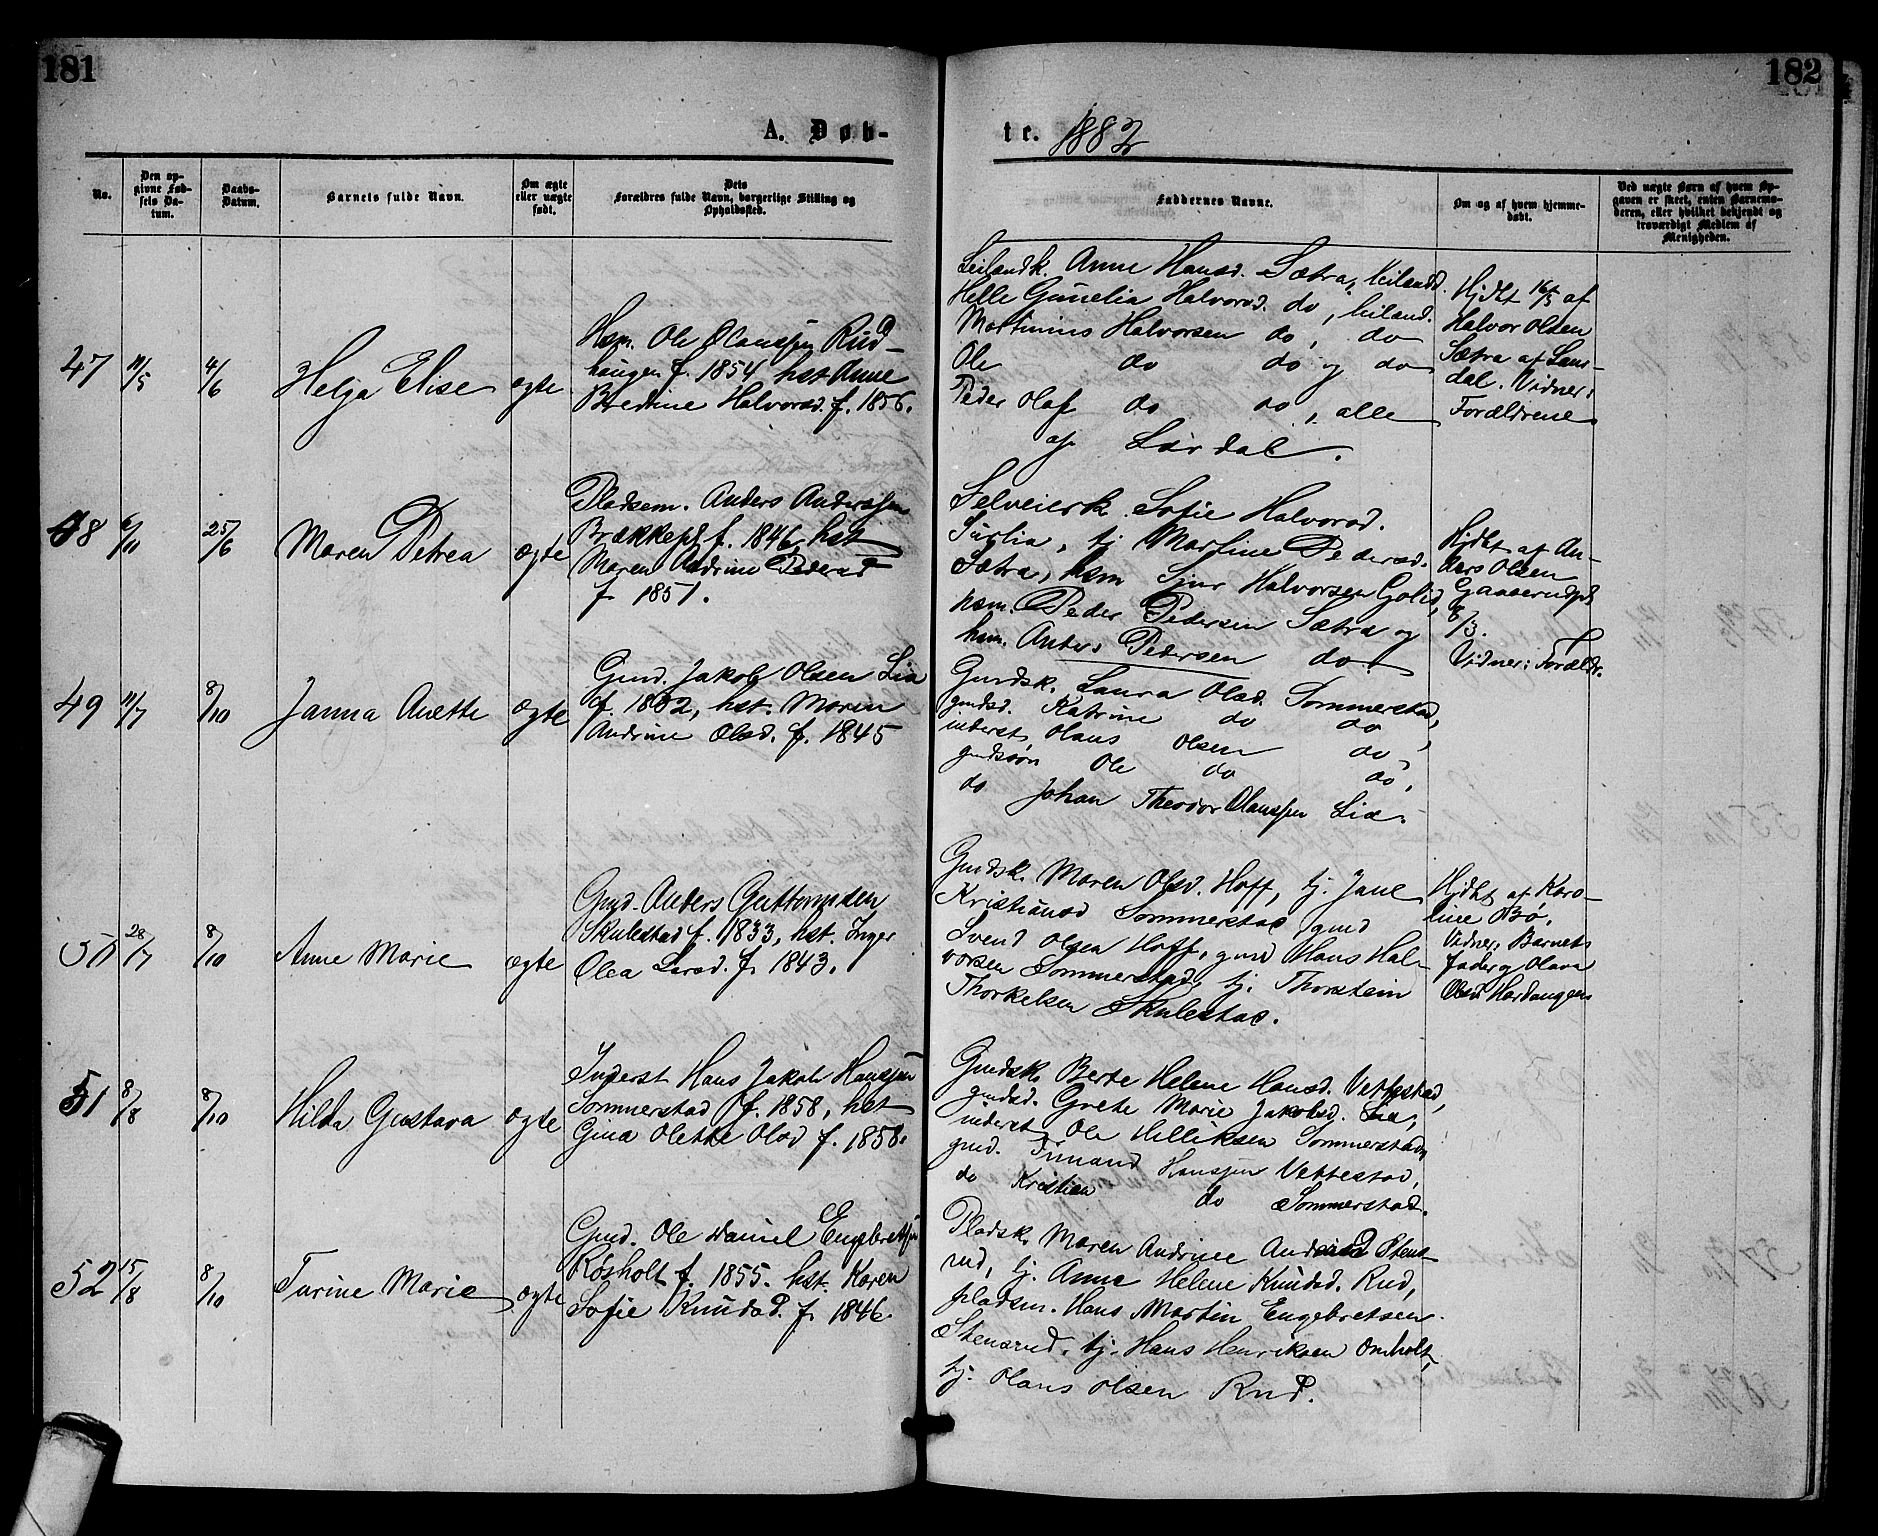 181
182
A. Døb-
te. 1882
No.
Den op-
givne Fød-
sels Da-
tum.
Daabs-
Datum.
Barnets fulde Navn.
Om ægte
eller uægte
født.
Dets
Forældres fulde Navn, borgerlige Stilling og
Opholdssted.
Faddernes Navne.
Om og af hvem hjemme-
døbt.
Ved uægte Børn af hvem Op-
gaven er skeet, enten Barnemo-
deren, eller hvilket bekjendt og
troværdigt Medlem af
Menigheden.
47 11/5 4/6 Helga Elise ægte
Hsm. Ole Olaussen Rud-
haugen f. 1854 hst Anne
Bredine Halvorsd. f. 1856.
Leilandk. Anne Hansd. Sætra, leilandd.
Helle Gunelia Halvorsd. do, leiland.
Martinius Halvorsen do, do
Ole do do og do
Peder Olaf do do, alle
af Lardal.
Hjdbt 16/5 af
Halvor Olsen
Sætra af Lar-
dal. Vidner:
Forældrene
48 6/11 25/6 Maren Petrea ægte
Pladsem. Anders Anderssen
Brækkepl f. 1846, hst
Maren Andrine Pedersd
f 1851.
Selveierk. Sofie Halvorsd.
Surlia, tj Martine Pedersd.
Sætra, hsm Sjur Halvorsen Golid,
hsm. Peder Pedersen Sætra og
hsm. Anders Pedersen do
Hjdbt af An-
ders Olsen
Gaaserudpl
8/3.
Vidner: Forældr.
49 11/7 8/10 Janna Anette ægte
Gmd. Jakob Olsen Lia
f. 1832, hst. Maren
Andrine Olsd. f. 1845
Gmdsk. Laura Olsd. Sommerstad,
gmdsd. Katrine do do,
inderst Olaus Olsen do,
gmdssøn Ole do do,
do Johan Theodor Olaussen Lia.
50 28/7 8/10 Anne Marie ægte
Gmd. Anders Guttormsen
Skulestad f. 1833, hst. Inger
Olea Larsd. f. 1843.
Gmdsk. Maren Olsd. Hoff, tj. Jane
Kristiansd Sommerstad, gmd
Svend Olsen Hoff, gmd Hans Hal-
vorsen Sommerstad, tj. Thorstein
Thorkelsen Skulestad.
Hjdbt af Karo-
line Bø,
Vidner, Barnets
fader og Olava
Olsd Hardangeren
51 8/8 8/10 Hilda Gustava ægte
Inderst Hans Jakob Hanssen
Sommerstad f. 1858, hst
Gina Olette Olsd f. 1858.
Gmdsk. Berte Helene Hansd. Vettestad,
gmdsd. Grete Marie Jakobsd. Lia,
inderst Ole Helliksen Sommerstad,
gmd. Hanssen Vettestad,
do Kristian do Sommerstad.
52 15/8 8/10 Turine Marie ægte
Gmd. Ole Daniel Engebretsen
Røsholt f. 1855. hst. Karen
Sofie Knudsd. f. 1846.
Pladsk. Maren Andrine Andersd Stens-
rud, tj. Anne Helene Knudsd. Rud,
pladsm. Hans Martin Engebretsen
Stensrud, tj. Hans Henriksen Omholt,
tj. Olaus Olsen Rud.